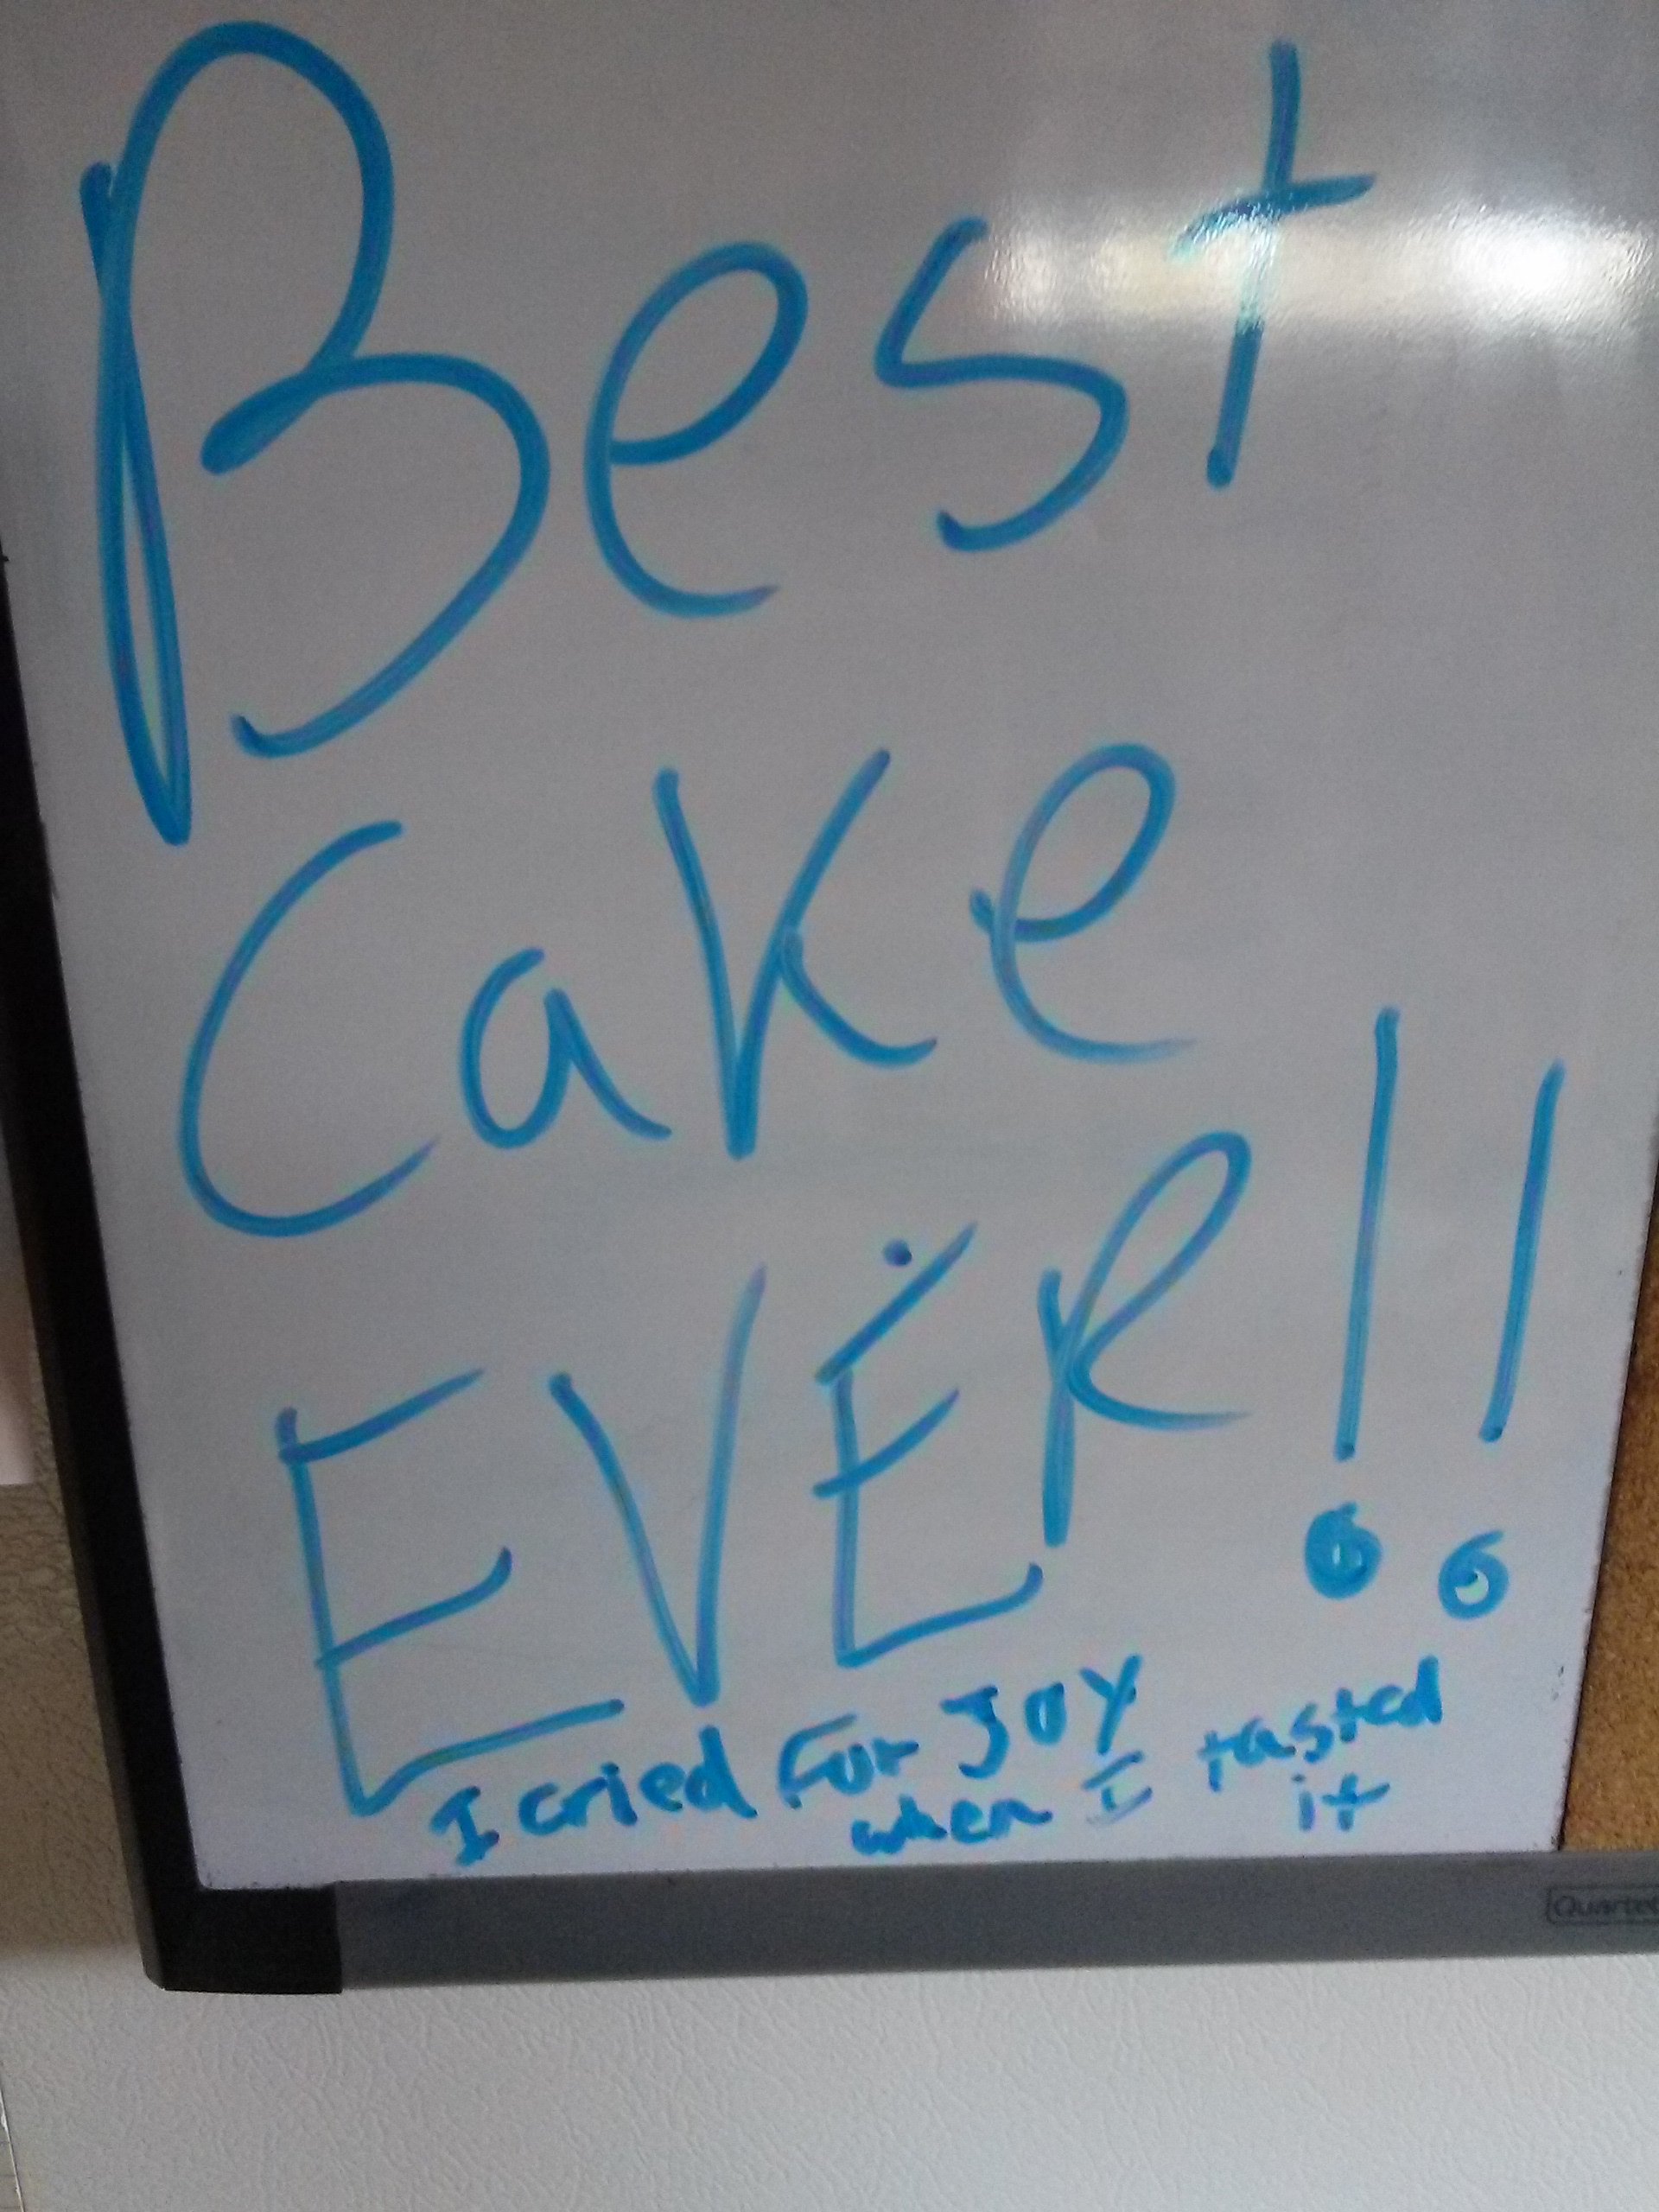 Best
Cake
EVER!!
I cried For JOY
when I tasted
it
Quartet